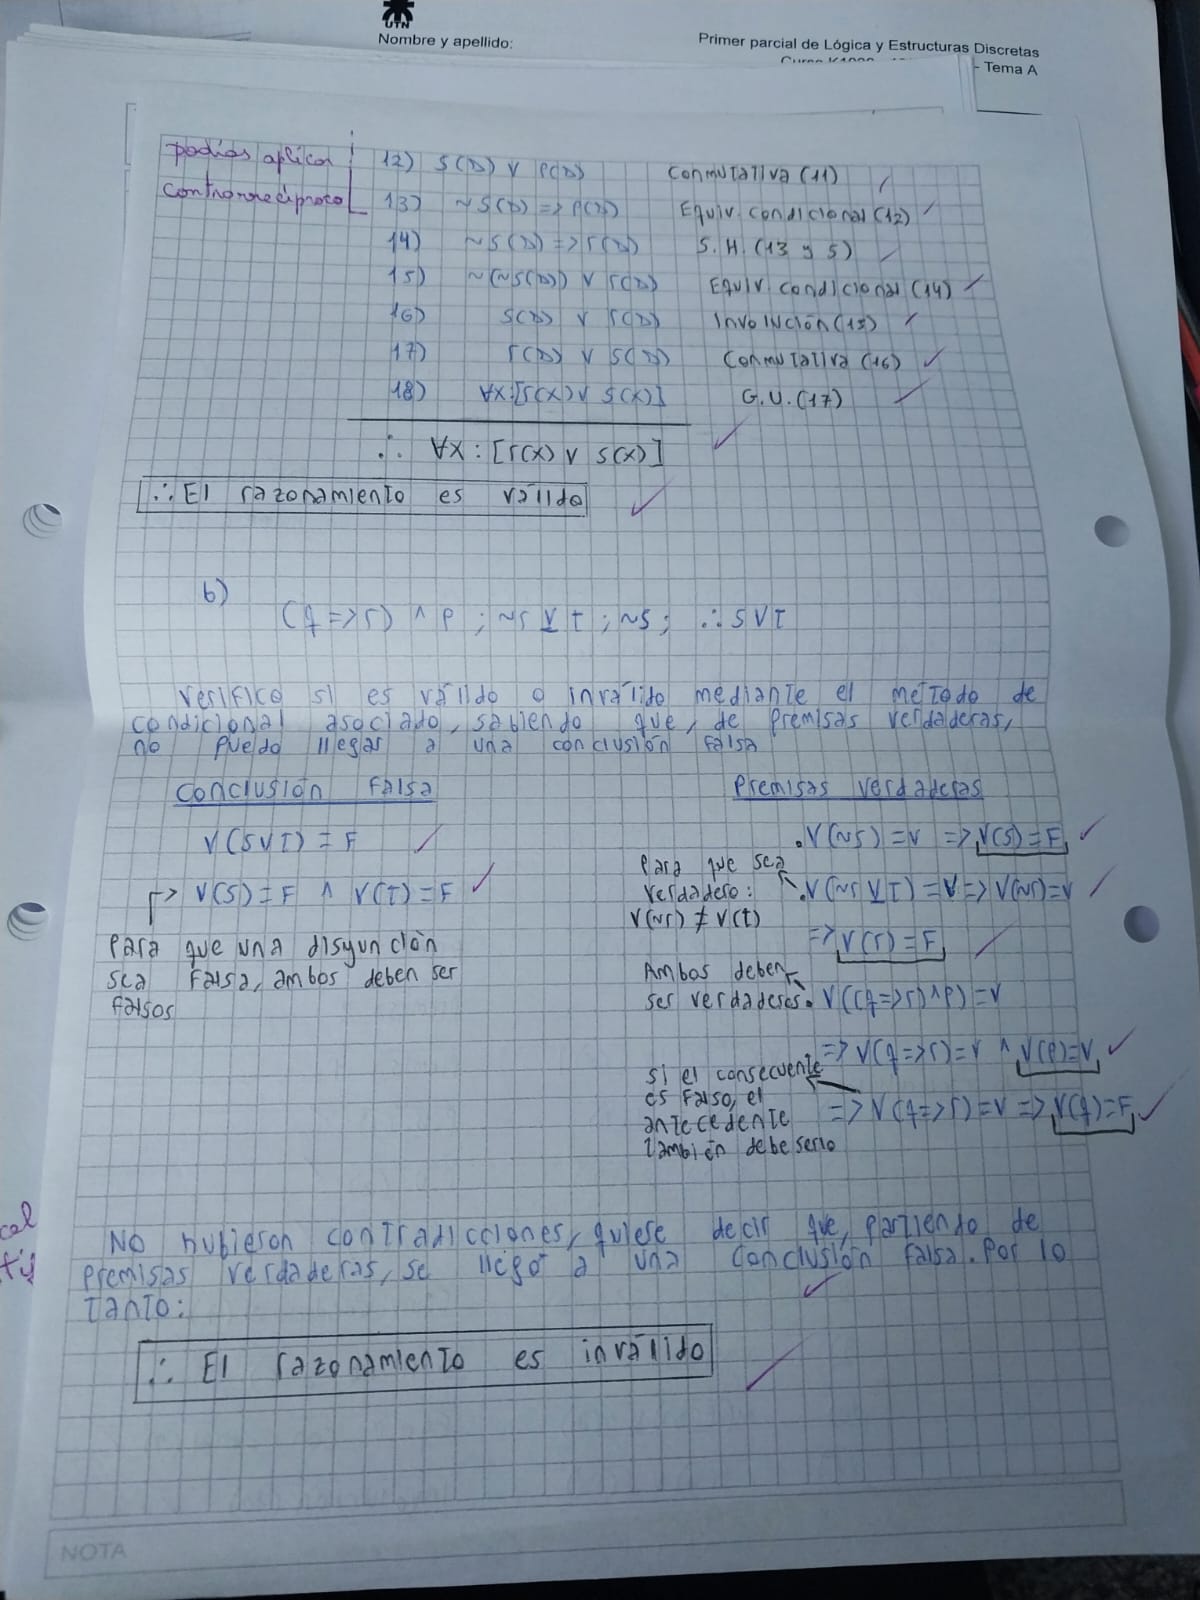 UTN
Nombre y apellido:
Primer parcial de Lógica y Estructuras Discretas
- Tema A
podías aplicar
contrarrecíproco
12) S(D) ∨ P(D) Conmutativa (11)
13) ~S(D) => P(D) Equiv. condicional (12)
14) ~S(D) => r(D) S.H. (13 y 5)
15) ~(~S(D)) ∨ r(D) Equiv. condicional (14)
16) S(D) ∨ r(D) Involución (15)
17) r(D) ∨ S(D) Conmutativa (16)
18) ∀x:[r(x) ∨ S(x)] G.U. (17)
∴ ∀x: [r(x) ∨ s(x)]
∴ El razonamiento es válido
b)
(q => r) ∧ p ; ~r ⊻ t ; ~s ; ∴ s ∨ t
Verifico si es válido o inválido mediante el método de
condicional asociado, sabiendo que, de premisas verdaderas,
no puedo llegar a una conclusión falsa
Conclusión Falsa
V(s ∨ t) = F
↱ V(s) = F ∧ V(t) = F
Para que una disyunción
sea falsa, ambos deben ser
falsos
Premisas verdaderas
. V(~s) = V => V(s) = F
Para que sea
verdadero:
V(~r) ≠ V(t)
. V(~r ⊻ t) = V => V(~r) = V
=> V(r) = F
Ambos deben
ser verdaderos
. V((q => r) ∧ p) = V
=> V(q => r) = V ∧ V(p) = V
si el consecuente
es falso, el
antecedente
también debe serlo
=> V(q => r) = V => V(q) = F
No hubieron contradicciones, quiere decir que, partiendo de
premisas verdaderas, se llegó a una conclusión falsa. Por lo
tanto:
∴ El razonamiento es inválido
NOTA